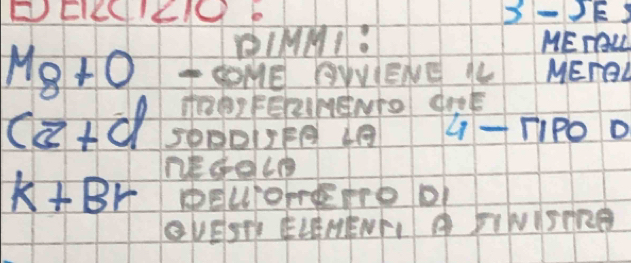 ESERCIZIO:
3 - SE S
DIMMI:
METALL
METAL
Mg + O
- COME AVVIENE IL
TRASFERIMENTO CHE
Ca + Cl
SODDISFA LA
4 - TIPO D
REGOLA
K + Br
DELL'OTTETTO DI
QUESTI ELEMENTI A SINISTRA